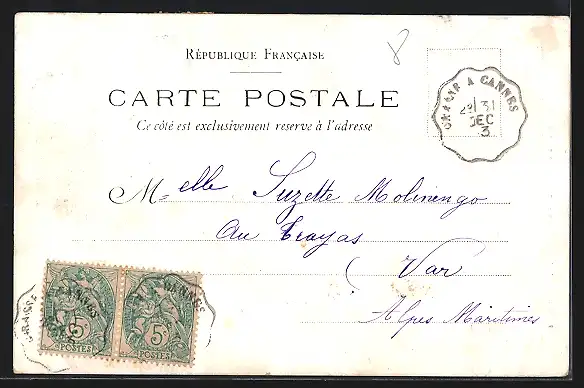 8
RÉPUBLIQUE FRANÇAISE
CARTE POSTALE
Ce côté est exclusivement reserve à l'adresse
GRASSE A CANNES
31
DEC
3
M elle Suzette Molinengo
Au Trayas
( Var
Alpes Maritimes
CANNES
CANNES
5c 5c
POSTES POSTES